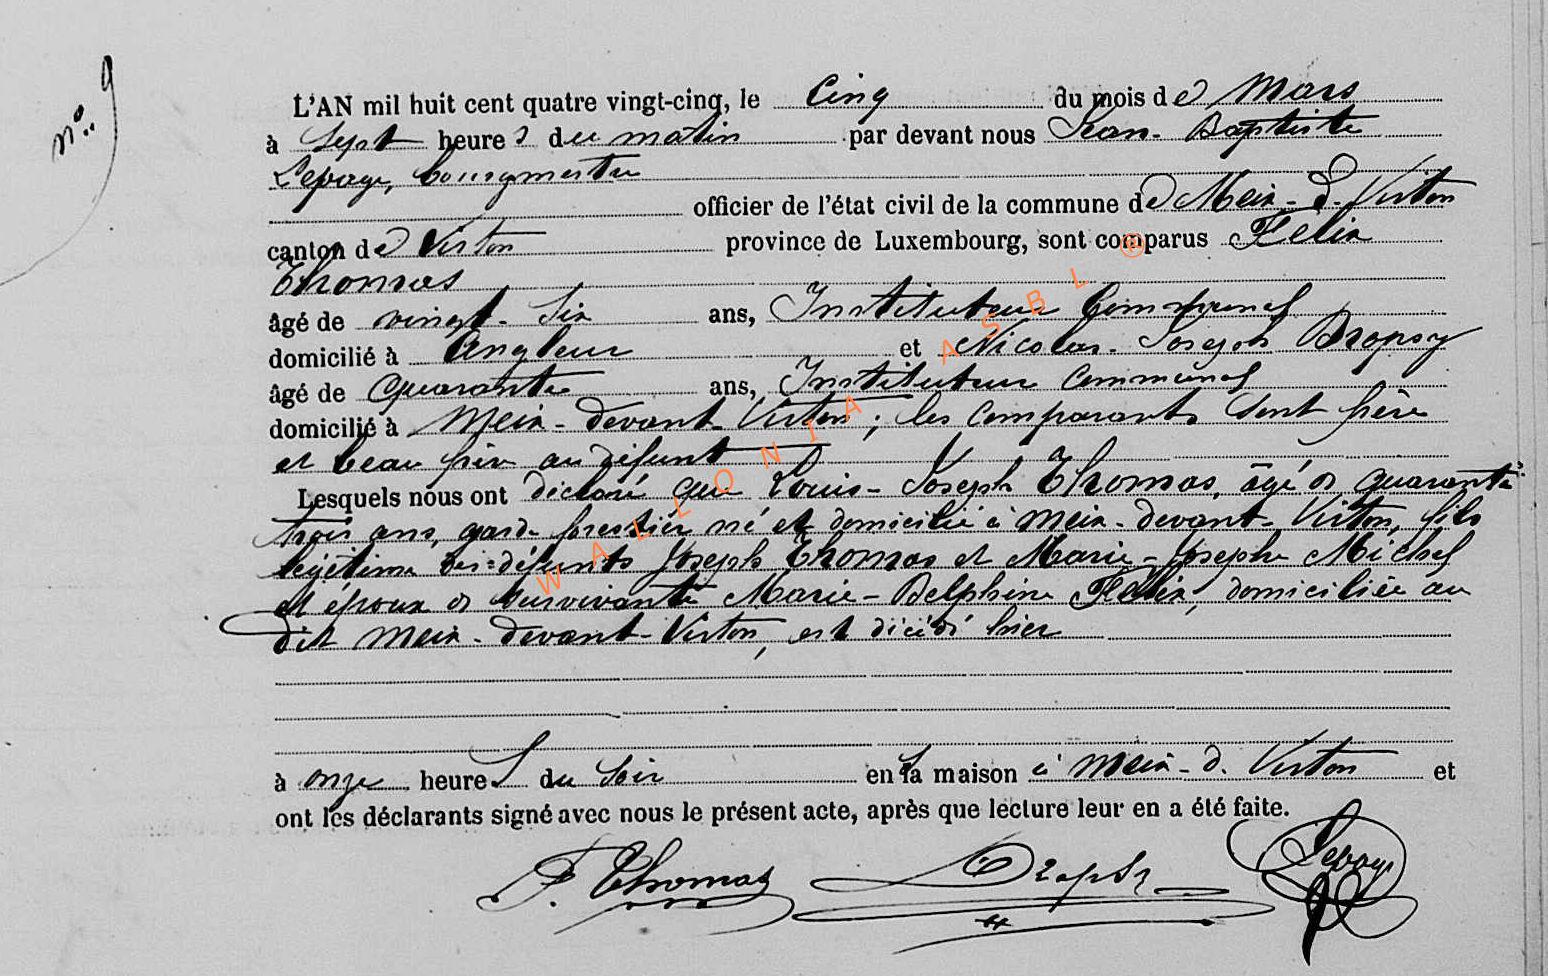 n°. 9
L'AN mil huit cent quatre vingt-cinq, le Cinq du mois de Mars
à Sept heures du matin par devant nous Jean-Baptiste
Lepage, bourgmestre
officier de l'état civil de la commune de Meix-d-Virton
canton de Virton province de Luxembourg, sont comparus Félix
Thomas
âgé de vingt-six ans, Instituteur Communal
domicilié à Angleur et Nicolas-Joseph Dropsy
âgé de quarante ans, Instituteur Communal
domicilié à Meix-devant-Virton; les comparants sont frère
et beau frère au défunt
Lesquels nous ont déclaré que Louis-Joseph Thomas, âgé de quarante
trois ans, garde forestier né et domicilié à Meix-devant-Virton, fils
légitime des défunts Joseph Thomas et Marie-Josephe Michel
et époux de survivante Marie-Delphine Félix, domiciliée au
dit Meix-devant-Virton, est décédé hier
à onze heures du soir en sa maison à Meix-d. Virton et
ont les déclarants signé avec nous le présent acte, après que lecture leur en a été faite.
F. Thomas Dropsy Lepage
WALLONIA ASBL ®